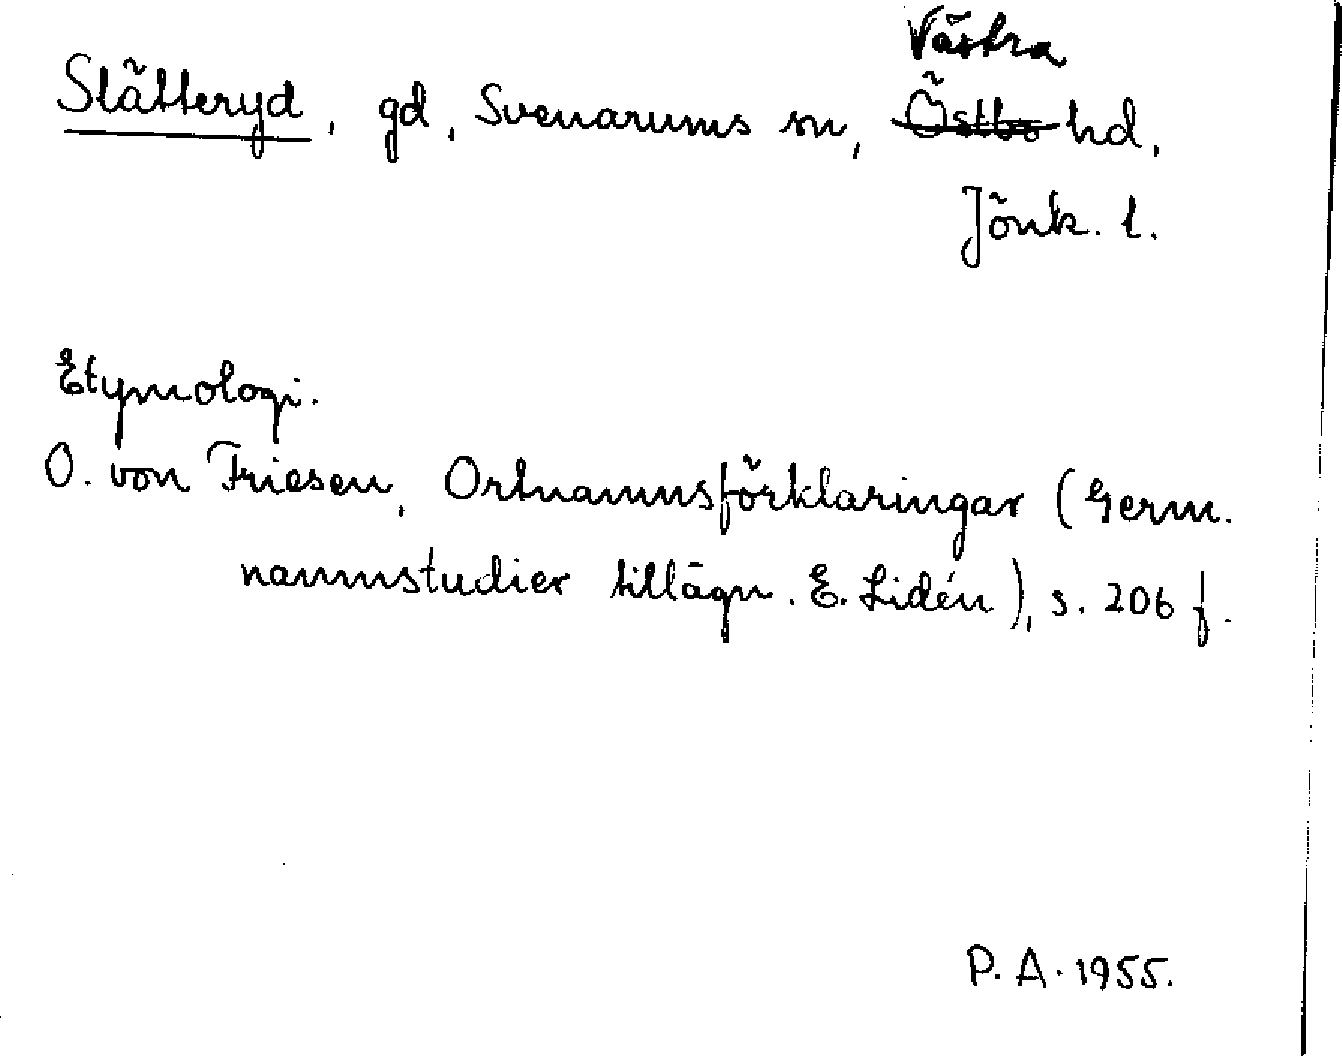 Västra
Slätteryd, gd, Svenarums sn, Östbo hd,
Jönk. l.
Etymologi.
O. von Friesen, Ortnamnsförklaringar (Germ.
namnstudier tillägn. E. Lidén), s. 206 f.
P. A. 1955.